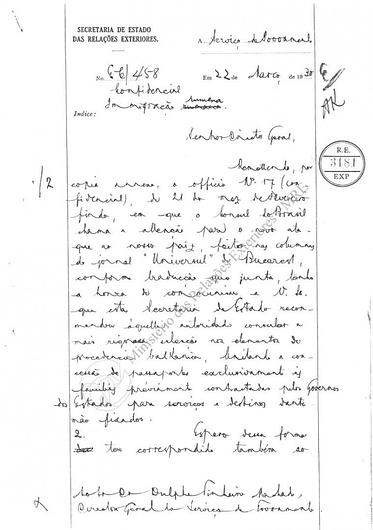 SECRETARIA DE ESTADO
DAS RELAÇÕES EXTERIORES.
A Serviço de Povoamento
No. EC/458
Em 22 de Março de 1930
Confidencial
Immigração rumena
Indice:
Senhor Director Geral,
R.E.
3181
EXP
Remettendo, por
1/2 copia annexa, o officio N. 17 (con-
fidencial), de 21 do mez de Fevereiro
findo, em que o Consul do Brasil
chama a attenção para o novo ata-
que ao nosso paiz, feito nas columnas
do jornal "Universul" de Bucarest,
conforme traducção que junto, tenho
a honra de communicar a V. S.
que esta Secretaria de Estado recom-
mendou áquella autoridade consular a
mais rigorosa selecção nos elementos de
procedencia balkanica, limitando a con-
cessão de passaportes exclusivamente ás
familias previamente contractadas pelos Governos
dos Estados para serviços e destinos dante-
mão fixados.
2. Espero dessa forma
ter correspondido também ao
Ao Sr. Dr. Dulphe Pinheiro Machado,
Director Geral do Serviço de Povoamento
Ministério das Relações Exteriores